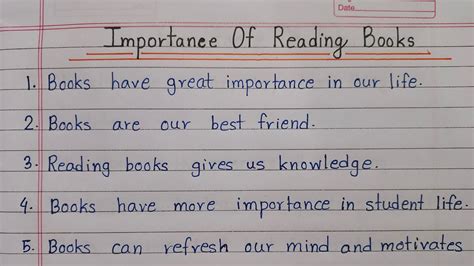 Date
Importance Of Reading Books
1. Books have great importance in our life.
2. Books are our best friend.
3. Reading books gives us knowledge.
4. Books have more importance in student life.
5. Books can refresh our mind and motivates